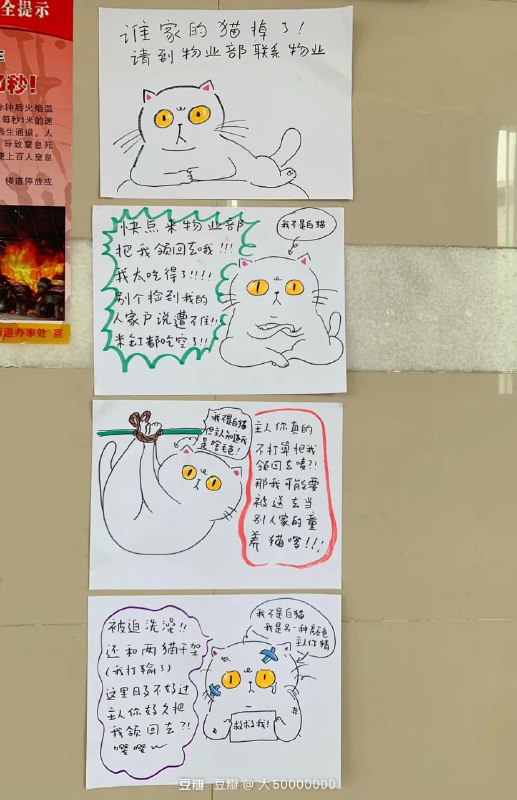 全提示
秒！
钟后火焰温
每秒1米的速
逃生通道。人
导致窒息死
上百人窒息
楼道停放或
道办事处 宣
谁家的猫掉了！
请到物业部联系物业
快点来物业部
把我领回去哦!!!
我太吃得了!!!!
别个捡到我的
人家户说遭不住!!
米缸都吃空了!!
我不是白猫
我不是白猫
但主人知道我
是啥毛色!
主人你真的
不打算把我
领回去唛?!
那我可能要
被送去当
别人家的童
养猫咯!!!
被迫洗澡!!
还和两猫干架
(我打输了)
这里日子不好过
主人你好久把
我领回去?!
嘤嘤~
我不是白猫
我是另一种颜色
主人你猜
救救我!
豆瓣 豆瓣@大50000000